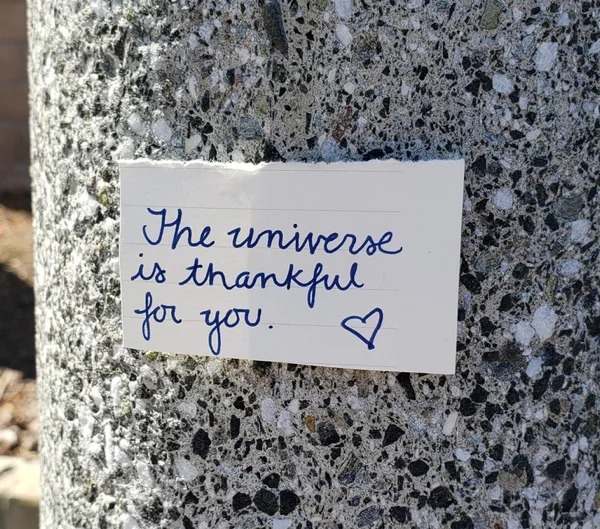 The universe
is thankful
for you. ♡